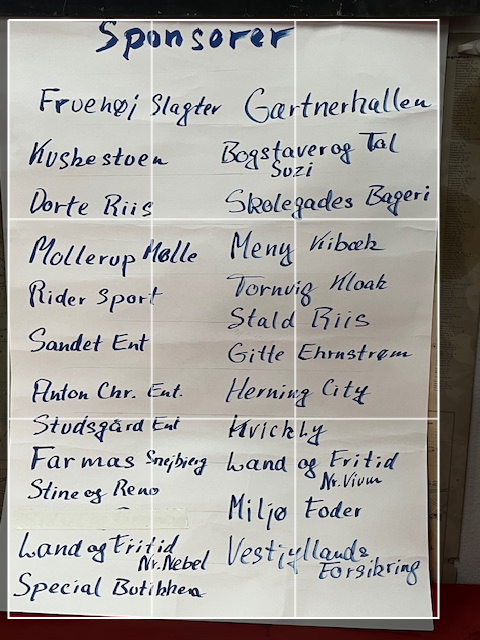 Sponsorer
Fruehøj Slagter
Kusbestuen
Dorte Riis
Mollerup Mølle
Rider Sport
Sandet Ent
Anton Chr. Ent.
Studsgård Ent
Farmas Snejbjerg
Stine og Reno
Land og Fritid
Nr. Nebel
Special Butikken
Gartnerhallen
Bogstaver og Tal
Suzi
Skolegades Bageri
Meny Kibæk
Tornvig Kloak
Stald Riis
Gitte Ehrnstrøm
Herning City
Kvickly
Land og Fritid
Nr. Vium
Miljø Foder
Vestjyllands
Forsikring